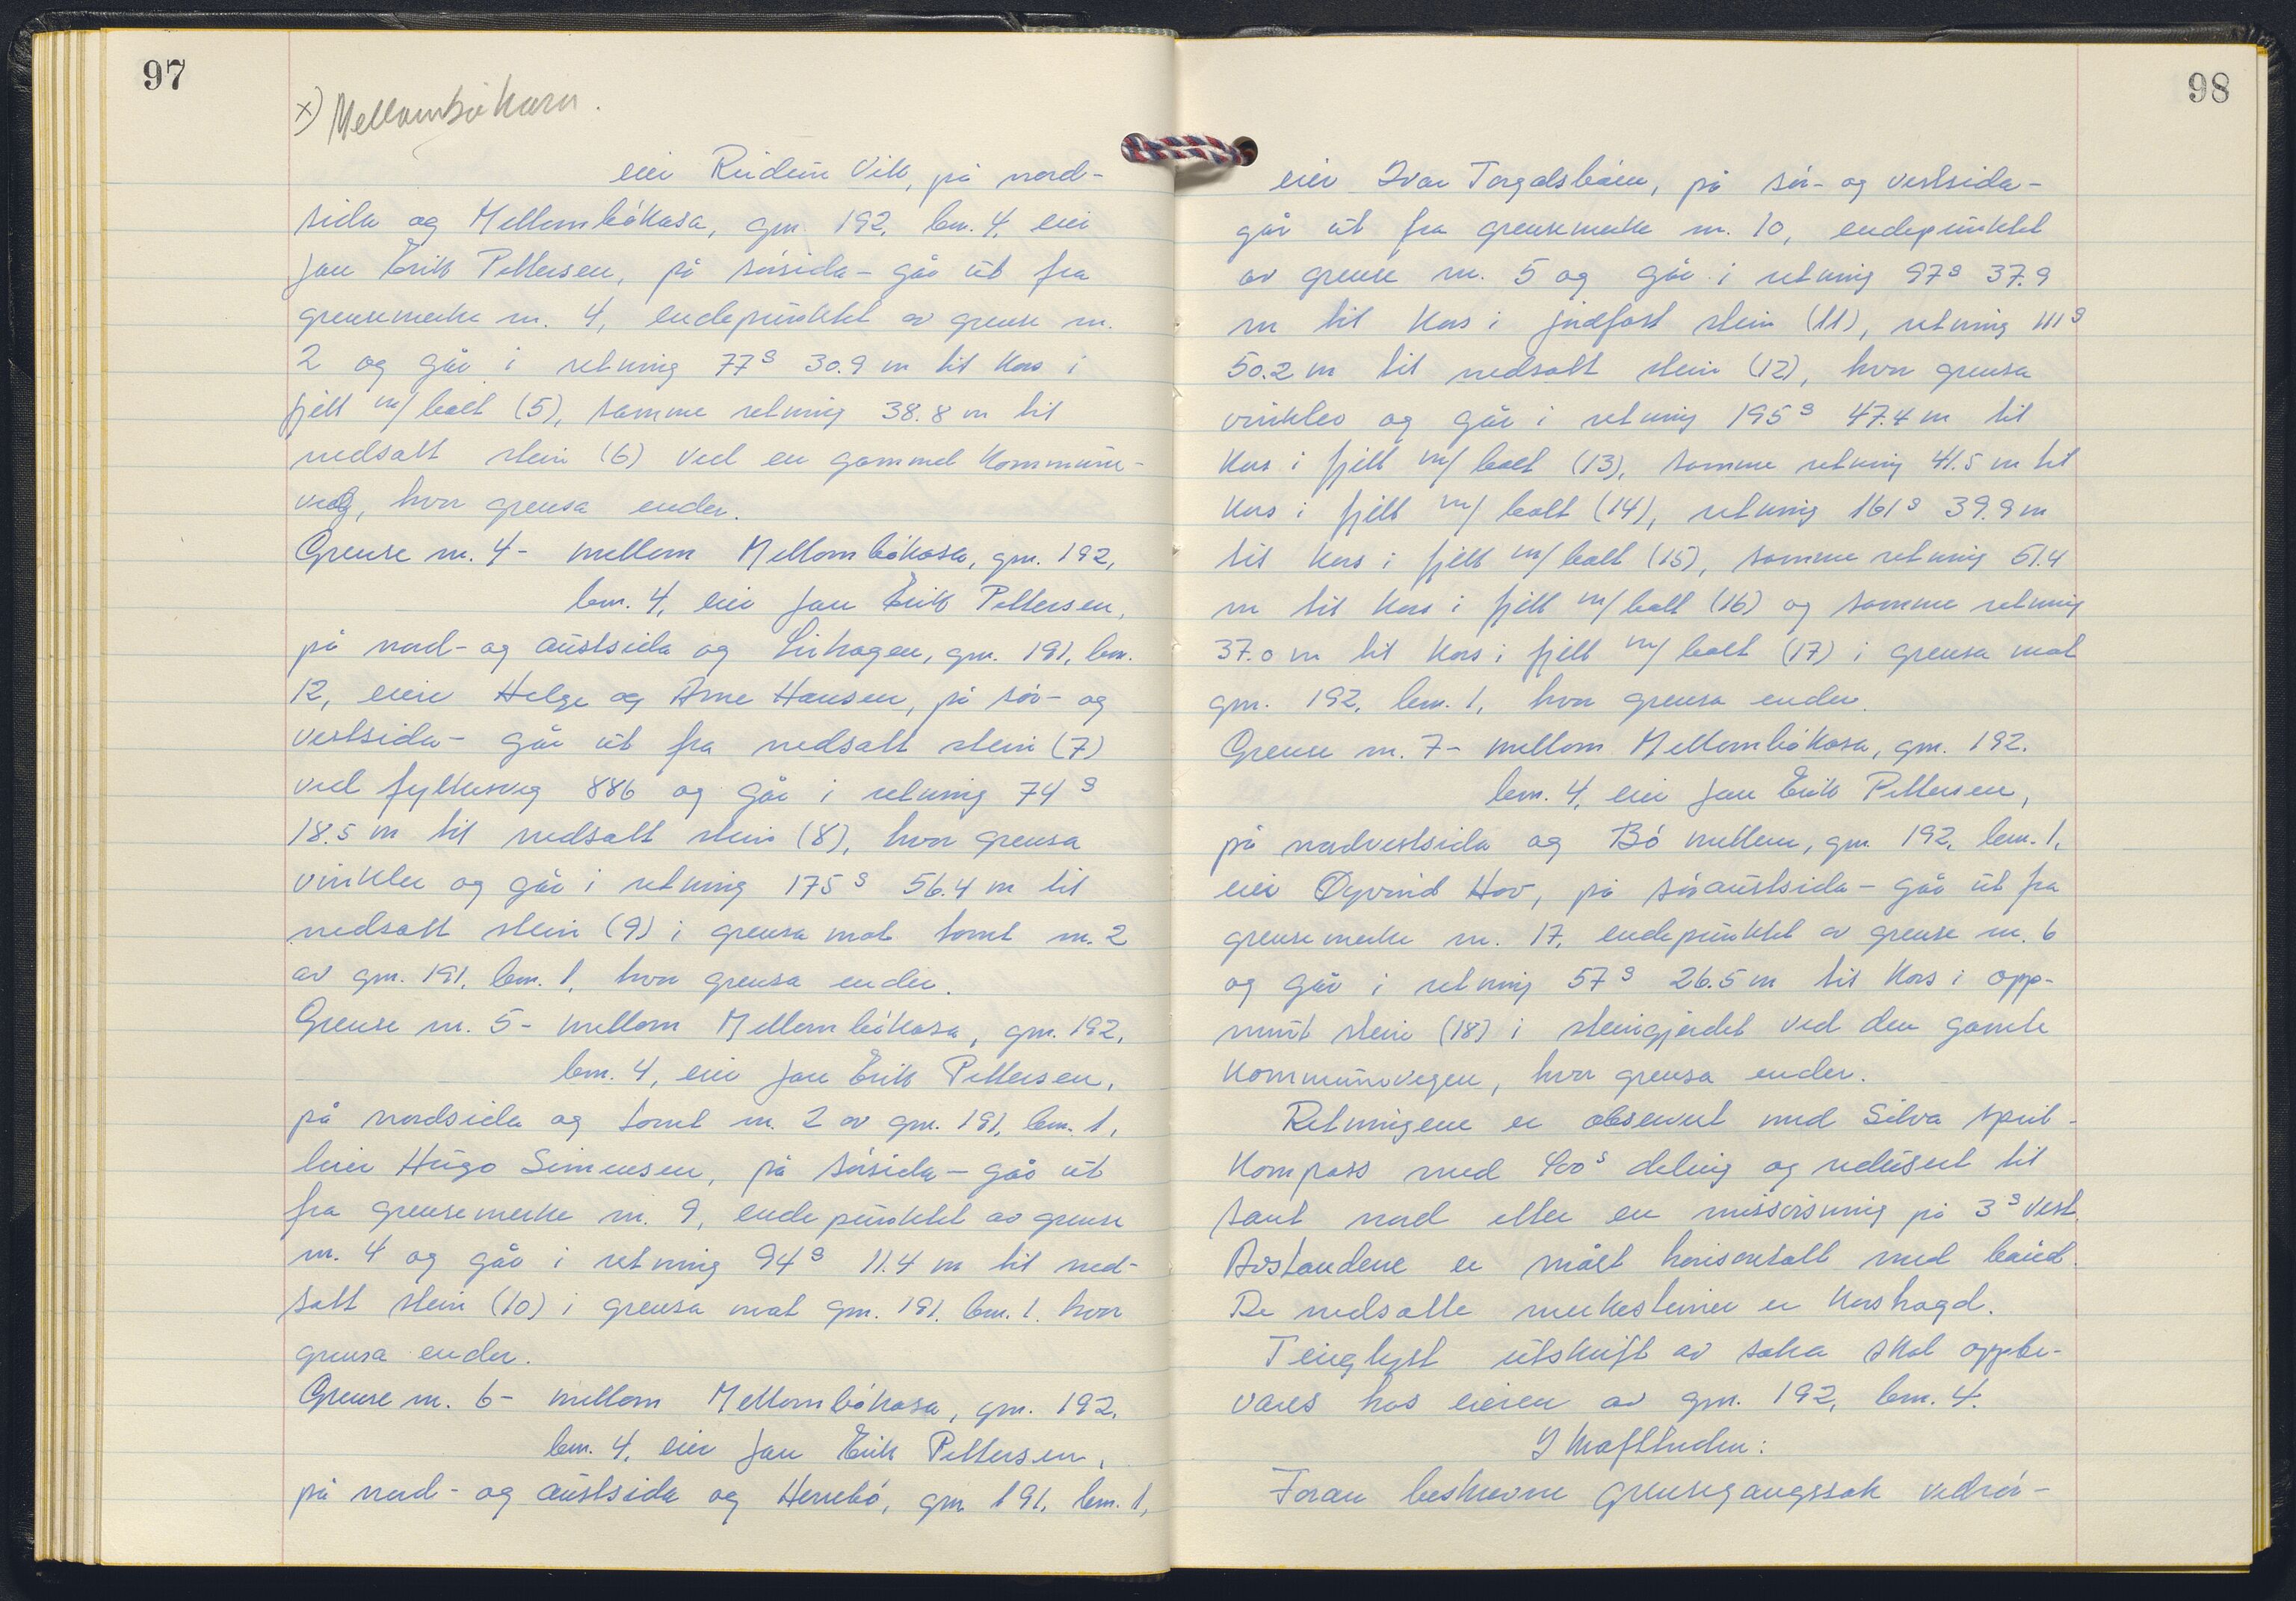 97
x) Mellombøkasa.
eier Reidun Vik, på nord-
sida og Mellombøkasa, gnr. 192, bnr. 4, eier
Jan Erik Pettersen, på sørsida - går ut fra
grensemerke nr. 4, endepunktet av grense nr.
2 og går i retning 77g 30.9 m til kors i
fjell m/bolt (5), samme retning 38.8 m til
nedsatt stein (6) ved en gammel kommune-
veg, hvor grensa ender.
Grense nr. 4 - mellom Mellombøkasa, gnr. 192,
bnr. 4, eier Jan Erik Pettersen,
på nord- og austsida og Lirhagen, gnr. 191, bnr.
12, eiere Helge og Arne Hansen, på sør- og
vestsida - går ut fra nedsatt stein (7)
ved fylkesveg 886 og går i retning 74g
18.5 m til nedsatt stein (8), hvor grensa
vinkler og går i retning 175g 56.4 m til
nedsatt stein (9) i grensa mot tomt nr. 2
av gnr. 191, bnr. 1, hvor grensa ender.
Grense nr. 5 - mellom Mellombøkasa, gnr. 192,
bnr. 4, eier Jan Erik Pettersen,
på nordsida og tomt nr. 2 av gnr. 191, bnr. 1,
leier Hugo Simensen, på sørsida - går ut
fra grensemerke nr. 9, endepunktet av grense
nr. 4 og går i retning 94g 11.4 m til ned-
satt stein (10) i grensa mot gnr. 191, bnr. 1. hvor
grensa ender.
Grense nr. 6 - mellom Mellombøkasa, gnr. 192,
bnr. 4, eier Jan Erik Pettersen,
på nord- og austsida og Herrebø, gnr. 191, bnr. 1,
98
eier Ivar Torgalsbøen, på sør- og vestsida -
går ut fra grensemerke nr. 10, endepunktet
av grense nr. 5 og går i retning 97g 37.9
m til kors i jordfast stein (11), retning 111g
50.2 m til nedsatt stein (12), hvor grensa
vinkler og går i retning 195g 47.4 m til
kors i fjell m/bolt (13), samme retning 41.5 m til
kors i fjell m/bolt (14), retning 161g 39.9 m
til kors i fjell m/bolt (15), samme retning 61.4
m til kors i fjell m/bolt (16) og samme retning
37.0 m til kors i fjell m/bolt (17) i grensa mot
gnr. 192, bnr. 1, hvor grensa ender.
Grense nr. 7 - mellom Mellombøkasa, gnr. 192.
bnr. 4, eier Jan Erik Pettersen,
på nordvestsida og Bø mellem, gnr. 192, bnr. 1,
eier Øyvind Hov, på søraustsida - går ut fra
grensemerke nr. 17, endepunktet av grense nr. 6
og går i retning 57g 26.5 m til kors i opp-
murt stein (18) i steingjerdet ved den gamle
kommunevegen, hvor grensa ender.
Retningene er observert med Silva sprit-
kompass med 400g deling og redusert til
sant nord etter en missvisning på 3g vest.
Avstandene er målt horisontalt med band.
De nedsatte merkesteiner er korshogd.
Tinglyst utskrift av saka skal oppbe-
vares hos eieren av gnr. 192, bnr. 4.
Ikrafttreden:
Foran beskrevne grensegangssak vedrør-